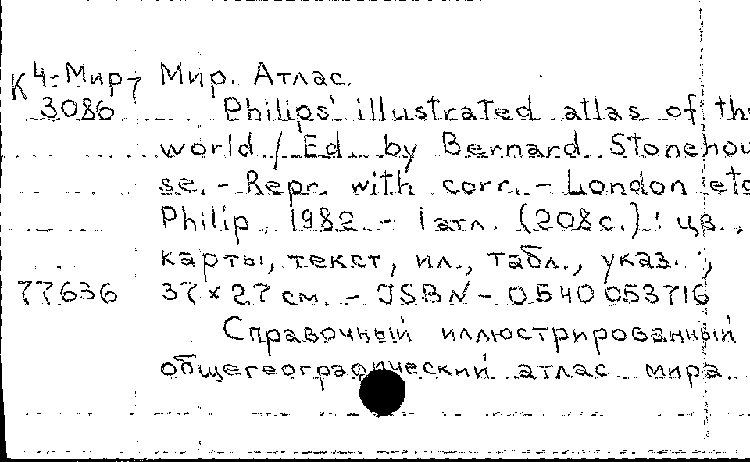 К4-Мир7 Мир. Атлас.
3086 Philips' illustrated atlas of the
world / Ed. by Bernard Stonehou-
se. - Repr. with corr. - London etc
Philip, 1982. - 1 атл. (208 с.) : цв.,
карты, текст, ил., табл., указ. ;
77636 37 × 27 см. - ISBN - 0540053716
Справочный иллюстрированный
общегеографический атлас мира.